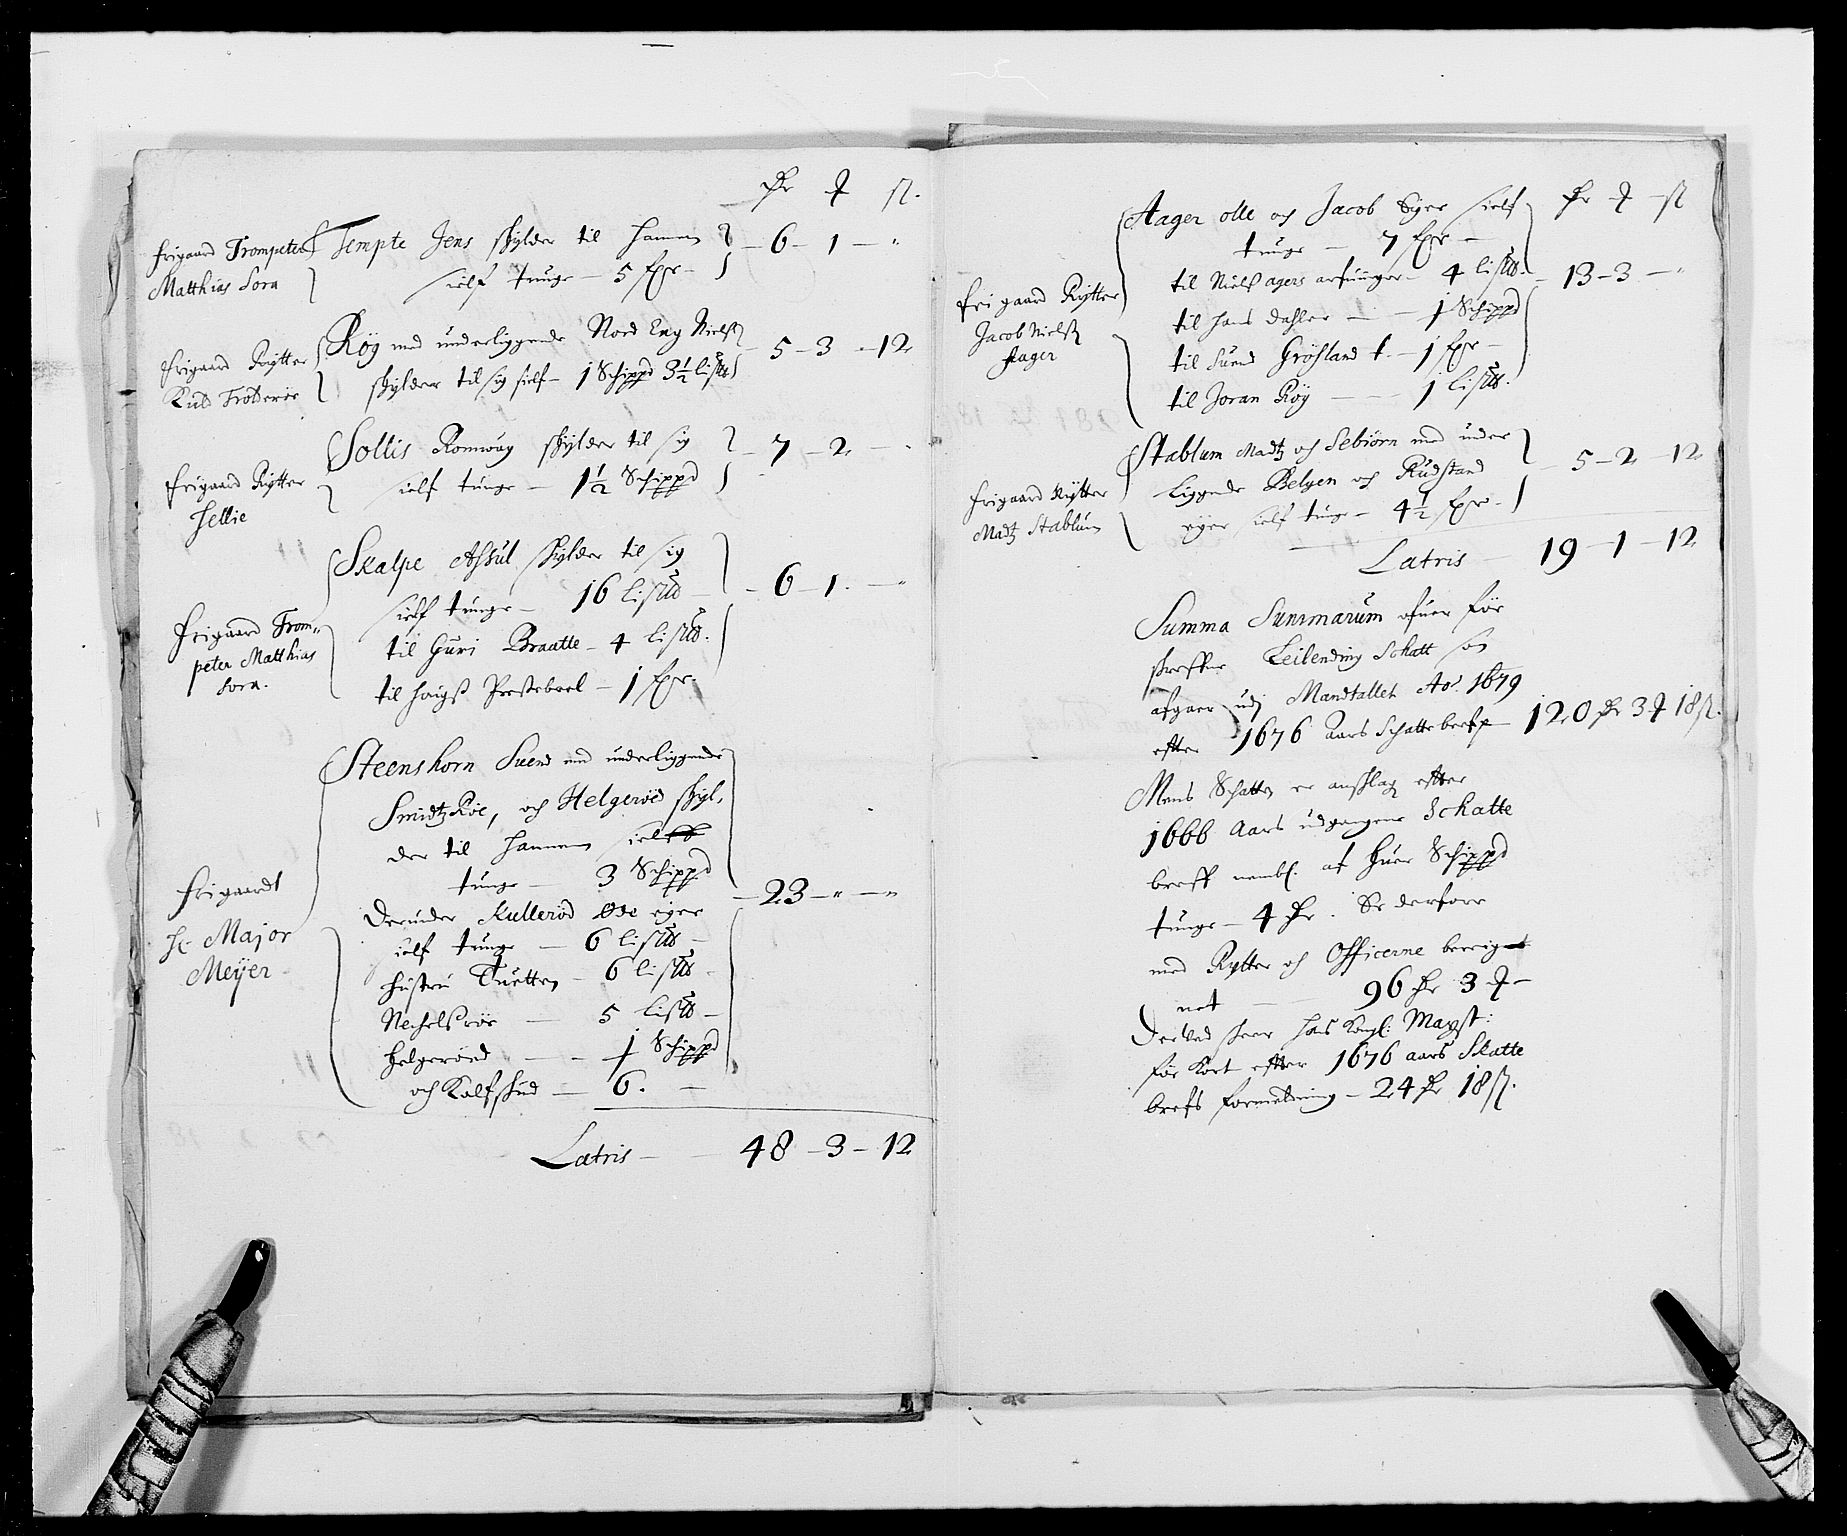 frigaard Trompeter
Matthias Sora
Tempte Jens skylder til hannem
sielf tunge - 5 fpr - 6 - 1 - "
frigaard Rytter
Knud Trötterör
Röy med underliggende Nord Eng Nielß
skylder til sig sielf - 1 Schippd 3½ lis℔ - 5 - 3 - 12
frigaard Rytter
Hellie
Sollis Romwng skylder til sig
sielf tunge - 1½ Schippd - 7 - 2 -
frigaard Trom-
peter Matthias
Sora.
Skalpe Aßul skylder til sig
sielf tunge - 16 lis℔ - 6 - 1 - "
til Guri Braatte - 4 lis℔.
til Præstebeel - 1 fpr.
frigaardt
Hr Major
Meÿer
Steenshorn Suend med underliggende
Smidtz Röe, och Helgeröd skyl-
der til hannem sielff
tunge - 3 Schippd
Derunder Kulleröd Øde eger
sielf tunge - 6 lis℔ - 23 - " - "
Hustru Tuetten - 6 lis℔
Nechelsröe - 5 lis℔ -
Helgeröed - 1 Schippd
och Kalfshud - 6. -
Latris - 48 - 3 - 12
frigaard Rytter
Jacob Nielß
Aager
Aager olle och Jacob Eger sielf
tunge - 7 fpr -
til Nielß agers arfuinger - 4 lis℔ - 13 - 3 - "
til hans dahler - 1 Schippd
til Suend Gröfland t. - 1 fpr -
til Joran Röy - 1 lis℔.
frigaard Rytter
Madtz Stablum
Stablum Madtz och Sebiörn med under
liggende Belgen och Rudstand
eger sielf tunge - 4½ fpr. - 5 - 2 - 12
Latris - 19 - 1 - 12
Summa Summarum ofuer för
skreffne Leilending Schatt som
afgaar udj Mandtallet Ao. 1679
efter 1676 Aars Schattebreff - 120 12 3 18
Mens Schatten er anslag efter
1666 Aars udgangene Schatte
breff nembl. af huer Schippd
tunge - 4. Er derfore
med Rytter och Officerne bereig-
net - 96 3 -
Derved skeer hans Kongl: Mayst:
för Kort efter 1676 aars Skatte
brefs formelding - 24 18